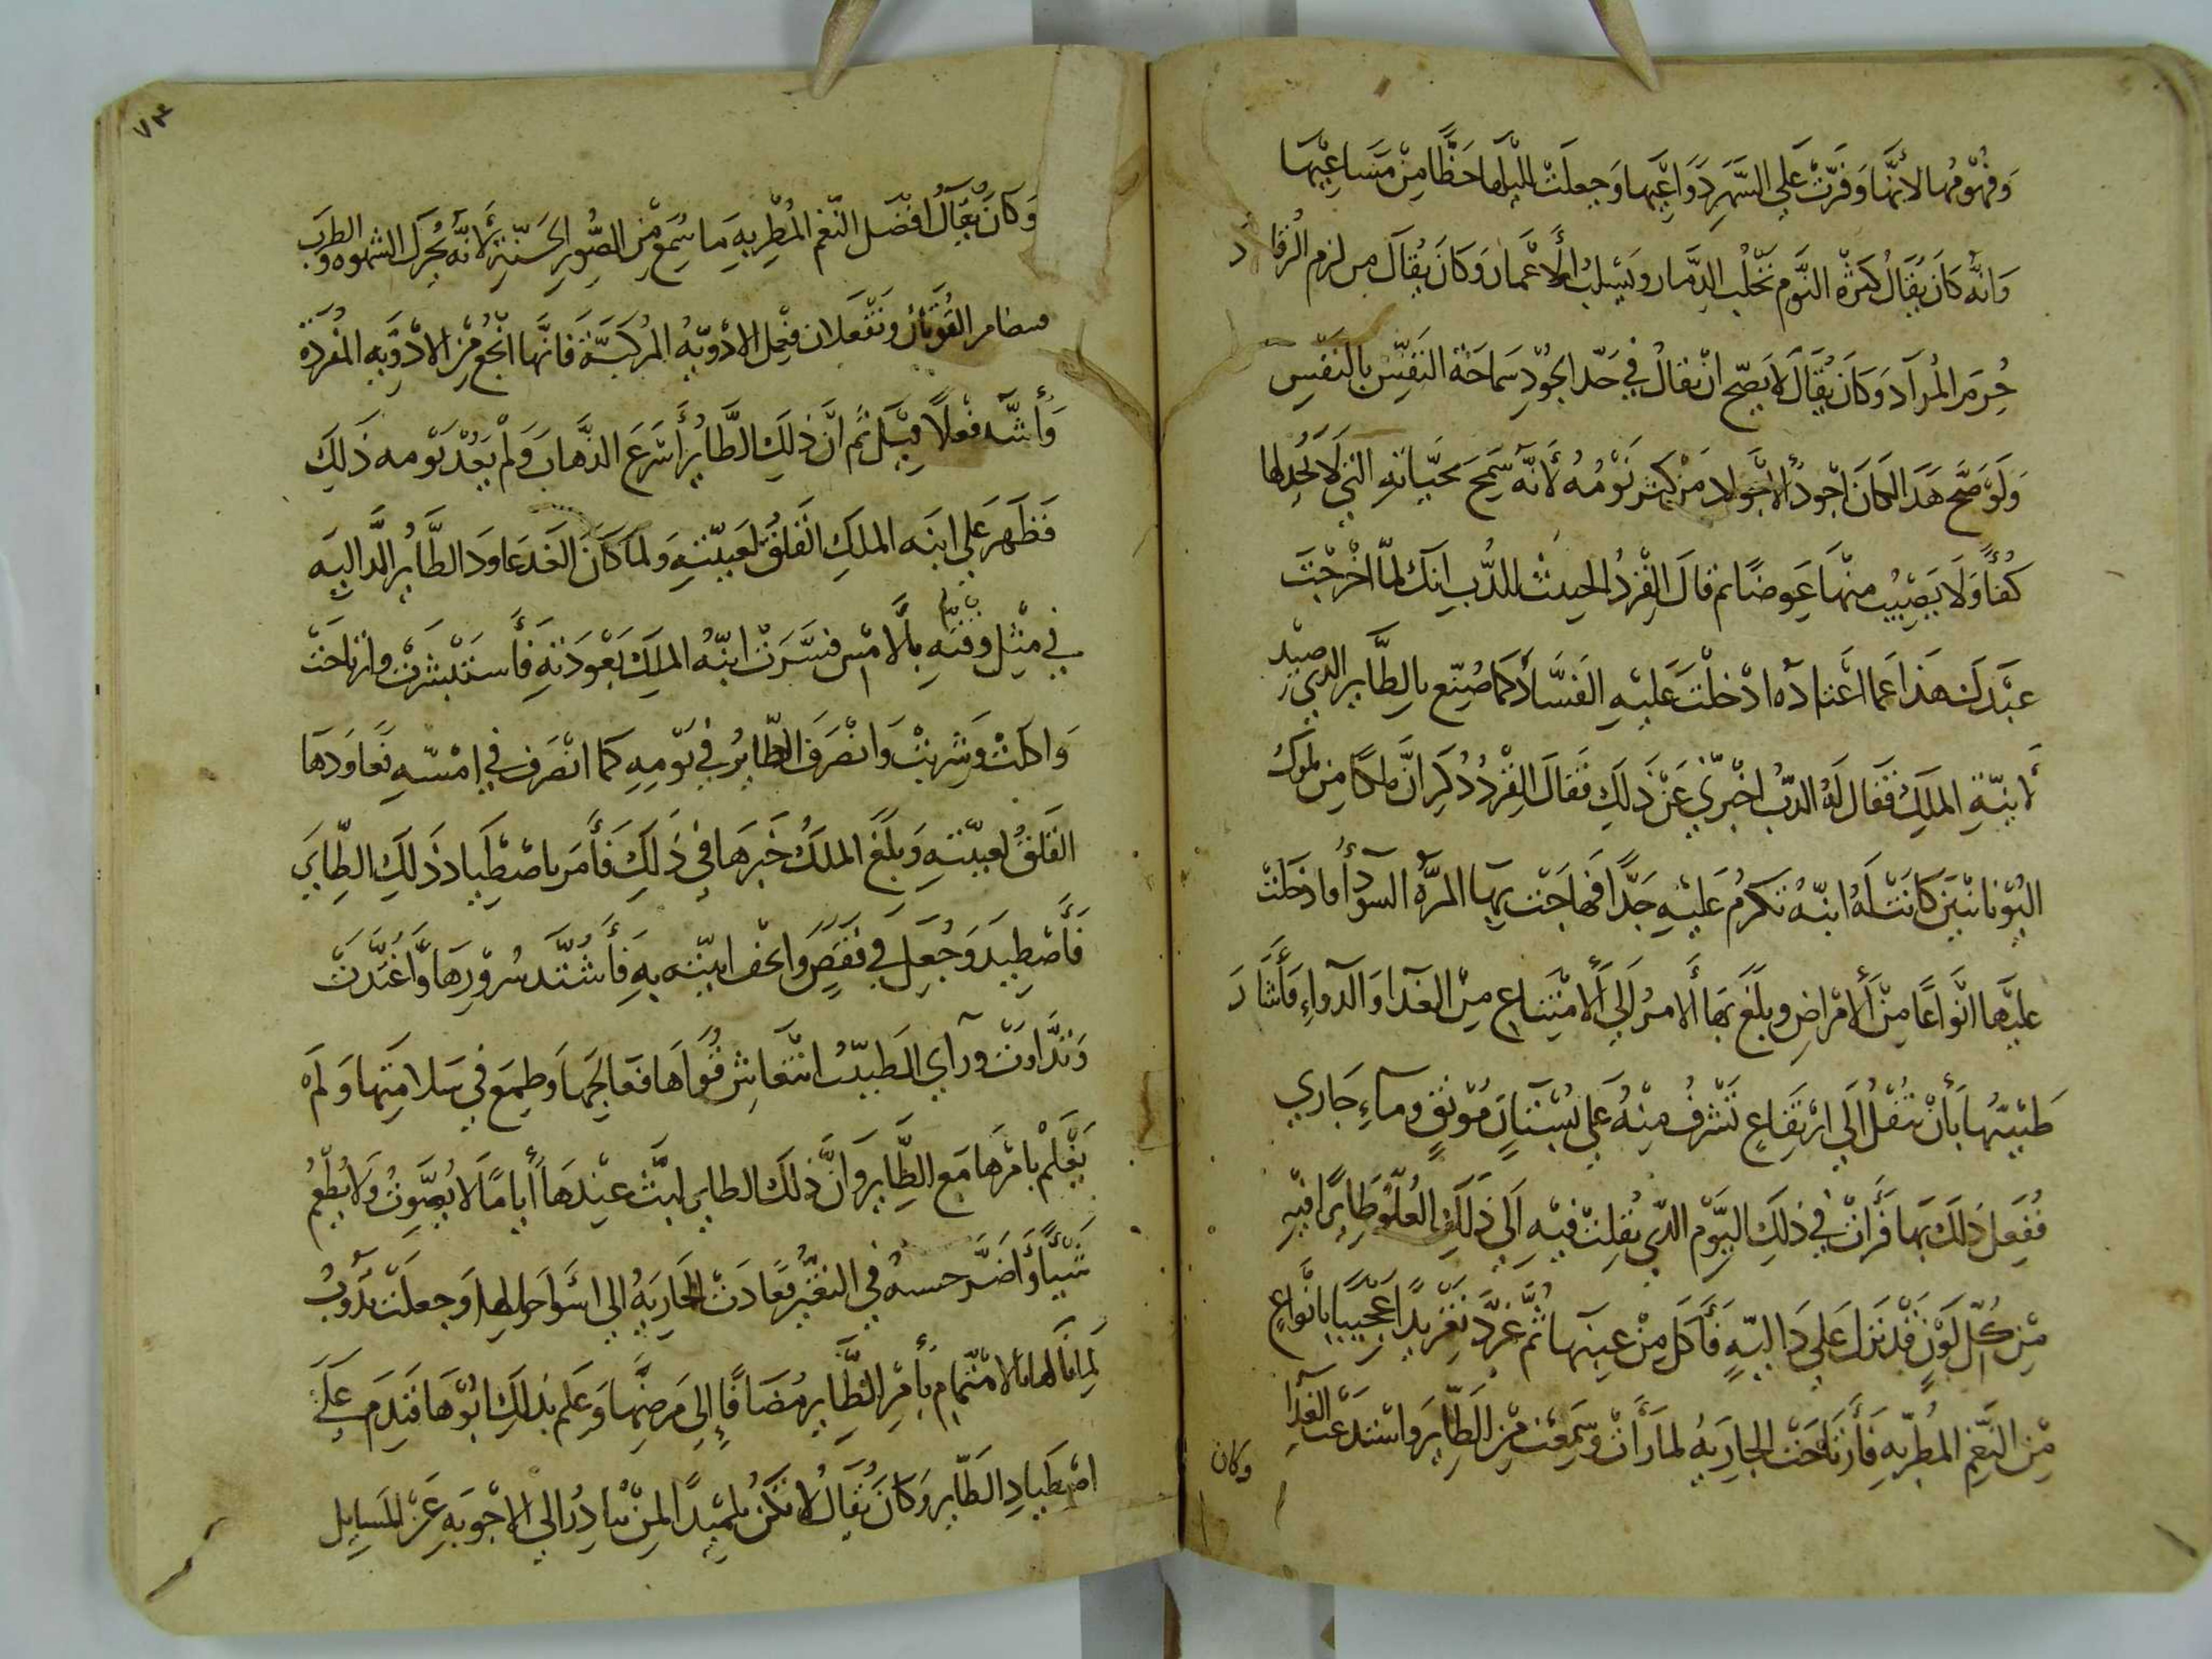 وفهومها لانها وفرت علي السهر دواعيها وجعلت لليلها حظا من مساعيها
وانه كان يقال كثرة النوم تخلب الدمار ويسلب الاعمار وكان يقال من لزم الرقاد
حرم المراد وكان يقال لا يصح ان يقال في حد الجود سماحة النفس بالنفيس
ولو صح هذا لكان اجود الاجواد من كثر نومه لانه سمح بحياته التي لا يجد لها
كفأ ولا يصيب منها عوضا ثم قال القرد الحدث للدب انك لما اخرجت
عبدك هذا عما اعتاده ادخلت عليه الفساد كما صنع بالطاير الذي صيد
لابنة الملك فقال له الدب اخبرني عن ذلك فقال القرد ذكر ان ملكا من ملوك
اليونانيين كانت له ابنه تكرم عليه جدا فهاجت بها المره السودا وادخلت
عليها انواعا من الامراض وبلغ بها الامر الي الامتناع من الغدا والدواء فاشار
طبيبها بان تنقل الي ارتفاع تشرف منه علي بستان مونق وماء جاري
ففعل ذلك بها فرات في ذلك اليوم الذي نقلت فيه الي ذلك العلو طايرا فيه
من كل لون قد نزل علي داليه فاكل من عنبها ثم غرد تغريدا عجيبا بانواع
من النغم المطربه فارتاحت الجاريه لما رات وسمعت من الطاير واستدعت الغدا
وكان
٧٣
وكان يقال افضل النغم المطربه ما سمع من الصور الحسنة لانه يحرك الشهوه والطرب
القوتان وتفعلان فعل الادويه المركبة فانها انجع من الادويه المفرده
واشد فعلا قيل ثم ان ذلك الطاير اسرع الذهاب ولم يعد يومه ذلك
فظهر علي ابنه الملك القلق لغيبته ولما كان الغد عاود الطاير الداليه
في مثل وقته بالامس فسرت ابنه الملك بعودته فاستبشرت وارتاحت
واكلت وشربت وانصرف الطاير في يومه كما انصرف في امسه فعاودها
القلق لغيبته وبلغ الملك خبرها في ذلك فامر باصطياد ذلك الطاير
فاصطيد وجعل في قفص واتحف ابنته به فاشتد سرورها واغتدت
وتداوت وراي الطبيب انتعاش قواها فعالجها وطمع في سلامتها ولم
يعلم بامرها مع الطاير وان ذلك الطاير لبث عندها اياما لا يصوت ولا يطعم
شيأ واضر حسنه في التغير فعادت الجاريه الي اسوا حالها وجعلت تدوب
لما نالها بالاهتمام بامر الطاير مضافا الي مرضها وعلم بذلك ابوها فندم علي
اصطياد الطاير وكان يقال لا تكن تلميدا لمن يبادر الي الاجوبه عن المسايل